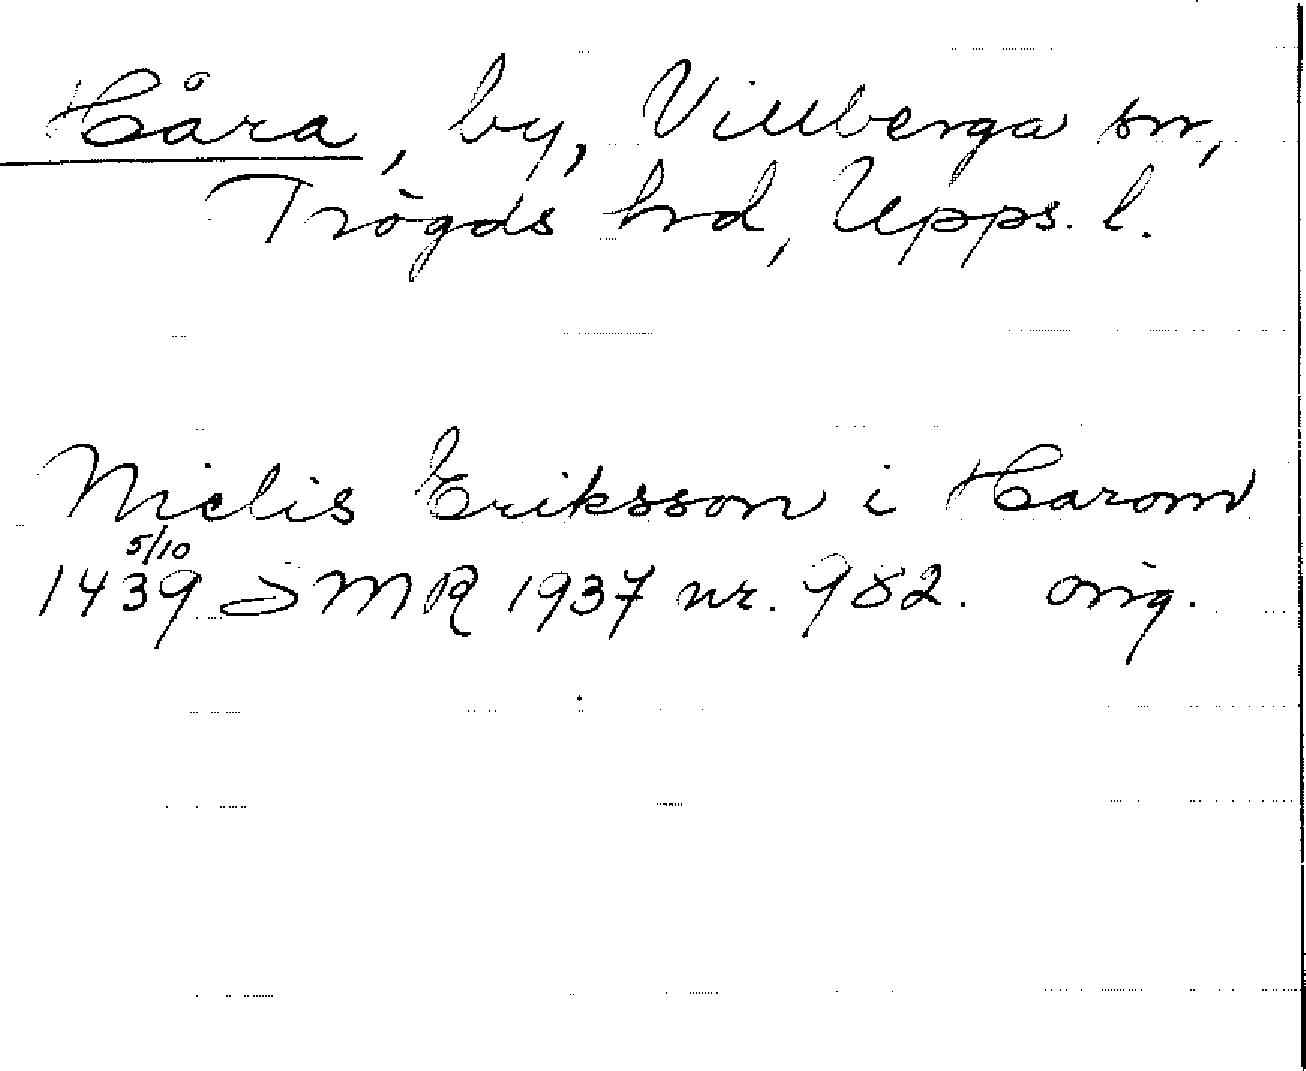 Håra, by, Villberga sn,
Trögds hrd, Upps. l.
Niclis Eriksson i Harom
5/10
1439 SMR 1937 nr. 982. orig.